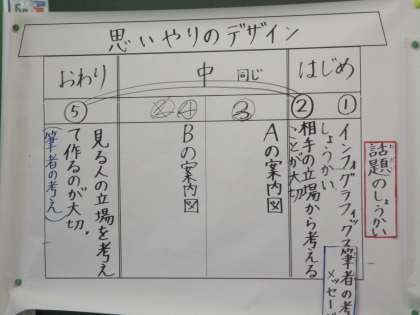 思いやりのデザイン
はじめ
中
同じ
おわり
①
②
③
④
⑤
話題のしょうかい
インフォグラフィックス
しょうかい
相手の立場から考える
ことが大切
筆者の考
メッセー
Aの案内図
Bの案内図
見る人の立場を考え
て作るのが大切。
(筆者の考え)